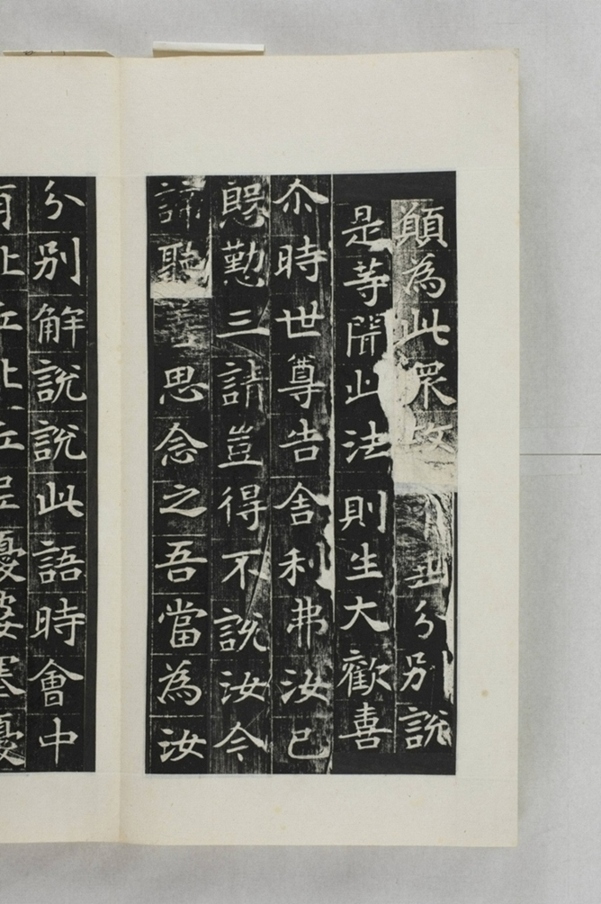 顚為此衆故分別說
是等聞此法則生大歡喜
尒時世尊告舍利弗汝已
慇勤三請豈得不說汝今
諦聽善思念之吾當為汝
分別解說說此語時會中